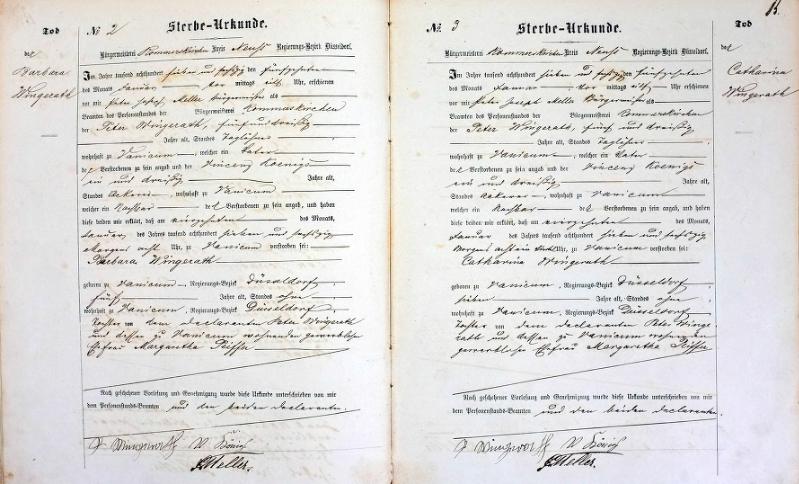 Tod
№ 2 Sterbe-Urkunde.
der
Barbara
Wingerath
Bürgermeisterei Rommerskirchen Kreis Neuss Regierungs-Bezirk Düsseldorf.
Im Jahre tausend achthundert sieben und sechszig den fünfzehnten
des Monats Januar Vormittags elf Uhr, erschienen
vor mir Peter Joseph Meller Bürgermeister als
Beamten des Personenstandes der Bürgermeisterei Rommerskirchen
der Peter Wingerath, fünf und dreißig
Jahre alt, Standes Taglöhner
wohnhaft zu Vanicum, welcher ein Vater
der Verstorbenen zu sein angab und der Vincenz Koenigs
ein und dreißig Jahre alt,
Standes Ackerer, wohnhaft zu Vanicum
welcher ein Nachbar der Verstorbenen zu sein angab, und haben
diese beiden mir erklärt, daß am vierzehnten des Monats
Januar, des Jahres tausend achthundert sieben und sechszig
Morgens acht Uhr, zu Vanicum verstorben sei:
Barbara Wingerath
geboren zu Vanicum, Regierungs-Bezirk Düsseldorf
fünf Jahre alt, Standes ohne
wohnhaft zu Vanicum, Regierungs-Bezirk Düsseldorf
Tochter von dem Declaranten Peter Wingerath
und dessen zu Vanicum wohnenden gewerblosen
Ehefrau Margaretha Peiffer
Nach geschehener Vorlesung und Genehmigung wurde diese Urkunde unterschrieben von mir
dem Personenstands-Beamten und den beiden Declaranten.
P Wingerath V. König
Meller.
15.
№ 3 Sterbe-Urkunde.
Tod
der
Catharina
Wingerath
Bürgermeisterei Rommerskirchen Kreis Neuss Regierungs-Bezirk Düsseldorf.
Im Jahre tausend achthundert sieben und sechszig den fünfzehnten
des Monats Januar Vormittags elf Uhr, erschienen
vor mir Peter Joseph Meller Bürgermeister als
Beamten des Personenstandes der Bürgermeisterei Rommerskirchen
der Peter Wingerath, fünf und dreißig
Jahre alt, Standes Taglöhner
wohnhaft zu Vanicum, welcher ein Vater
der Verstorbenen zu sein angab und der Vincenz Koenigs
ein und dreißig Jahre alt,
Standes Ackerer, wohnhaft zu Vanicum
welcher ein Nachbar der Verstorbenen zu sein angab, und haben
diese beiden mir erklärt, daß am vierzehnten des Monats
Januar, des Jahres tausend achthundert sieben und sechszig
Morgens acht ein Uhr, zu Vanicum verstorben sei:
Catharina Wingerath
geboren zu Vanicum, Regierungs-Bezirk Düsseldorf
sieben Jahre alt, Standes ohne
wohnhaft zu Vanicum, Regierungs-Bezirk Düsseldorf
Tochter von dem Declaranten Peter Winge
rath und dessen zu Vanicum wohnenden
gewerblosen Ehefrau Margaretha Peiffer
Nach geschehener Vorlesung und Genehmigung wurde diese Urkunde unterschrieben von mir
dem Personenstands-Beamten und den beiden Declaranten.
P Wingerath V. König
Meller.